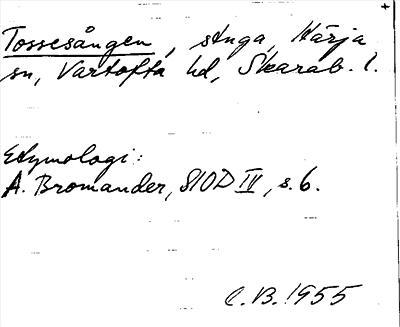 Tossesången, stuga, Härja
sn, Vartofta hd, Skarab. l.
Etymologi:
A. Bromander, SIOD IV, s. 6.
C.B. 1955